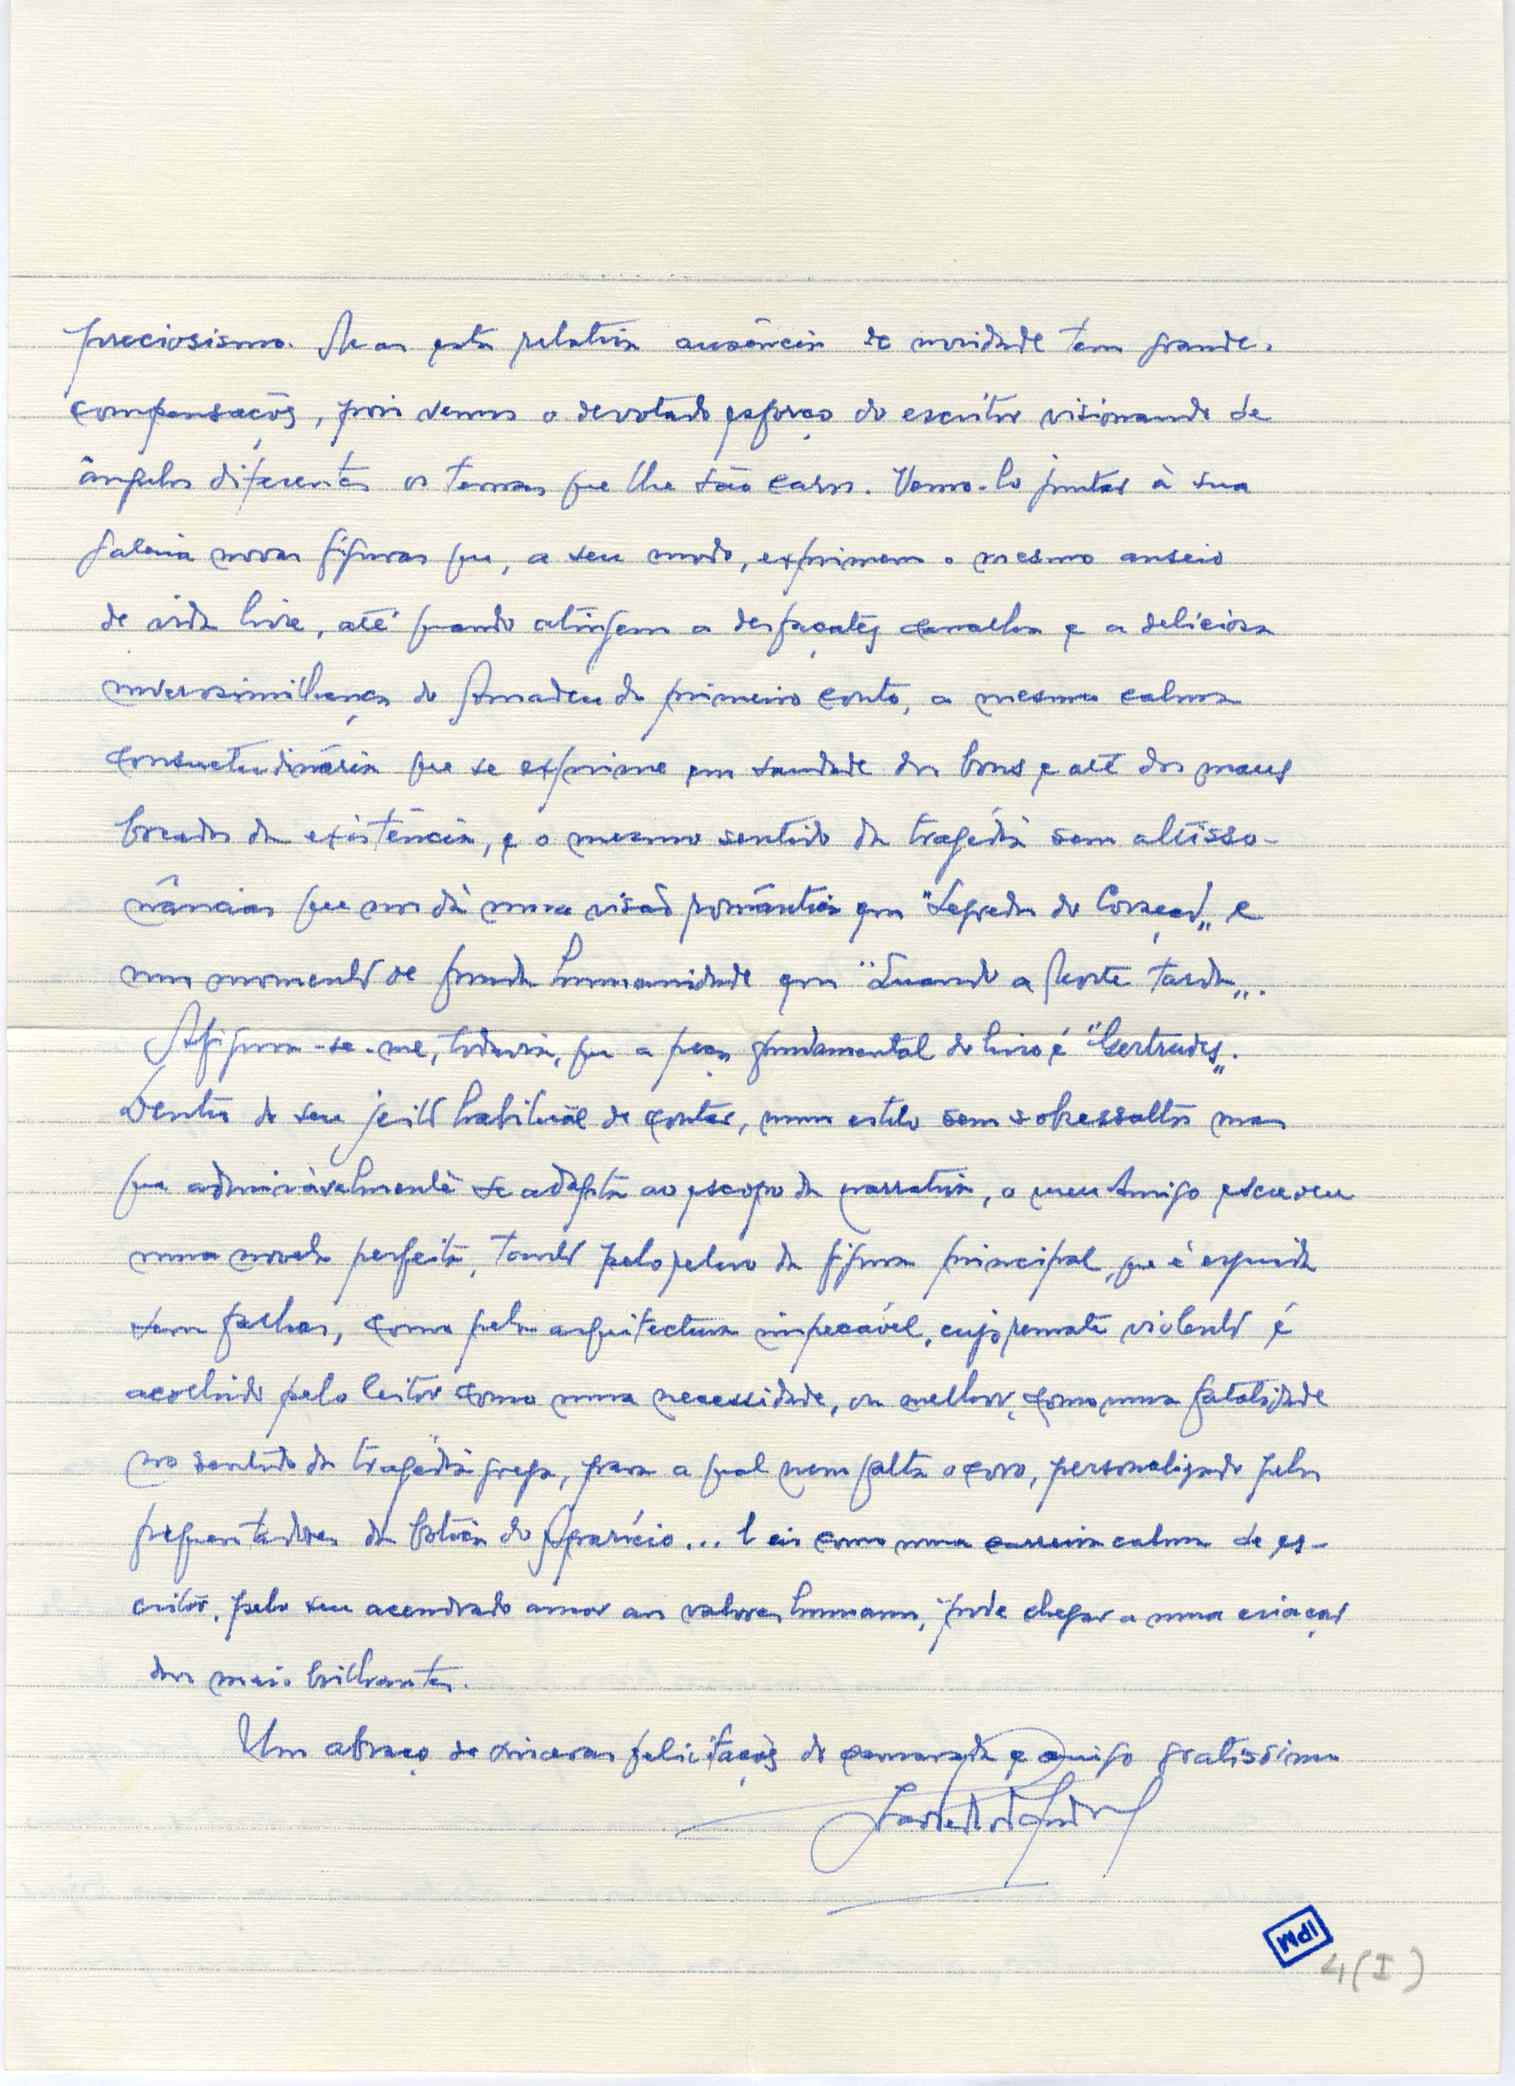 preciosismo. Mas esta relativa ausência de novidade tem grandes
compensações, pois vemos o devotado esforço do escritor visionando de
ângulos diferentes os temas que lhe são caros. Vemo-lo juntar à sua
galeria novas figuras que, a seu modo, exprimem o mesmo anseio
de vida livre, até quando atingem a desfaçatez canalha e a deliciosa
inverosimilhança do Amadeu do primeiro conto, a mesma calma
consuetudinária que se exprime em saudade dos bons e até dos maus
bocados da existência, e o mesmo sentido da tragédia sem altisso-
nâncias que nos dá uma visão romântica em "Segredos do Coração" e
um momento de funda humanidade em "Quando a Morte tarda".
Afigura-se-me, todavia, que a peça fundamental do livro é "Gertrudes".
Dentro do seu jeito habitual de contar, num estilo sem sobressaltos mas
que admiràvelmente se adapta ao escopo da narrativa, o meu Amigo escreveu
uma novela perfeita, tanto pelo relevo da figura principal, que é erguida
sem falhas, como pela arquitectura impecável, cujo remate violento é
acolhido pelo leitor como uma necessidade, ou melhor, como uma fatalidade
no sentido da tragédia grega, para a qual nem falta o coro, personalizado pelos
frequentadores da botica do Aparício... E eis como uma carreira calma de es-
critor, pelo seu acendrado amor aos valores humanos, pode chegar a uma criação
das mais brilhantes.
Um abraço de sinceras felicitações do camarada e amigo gratíssimo
IPM
4 (I)